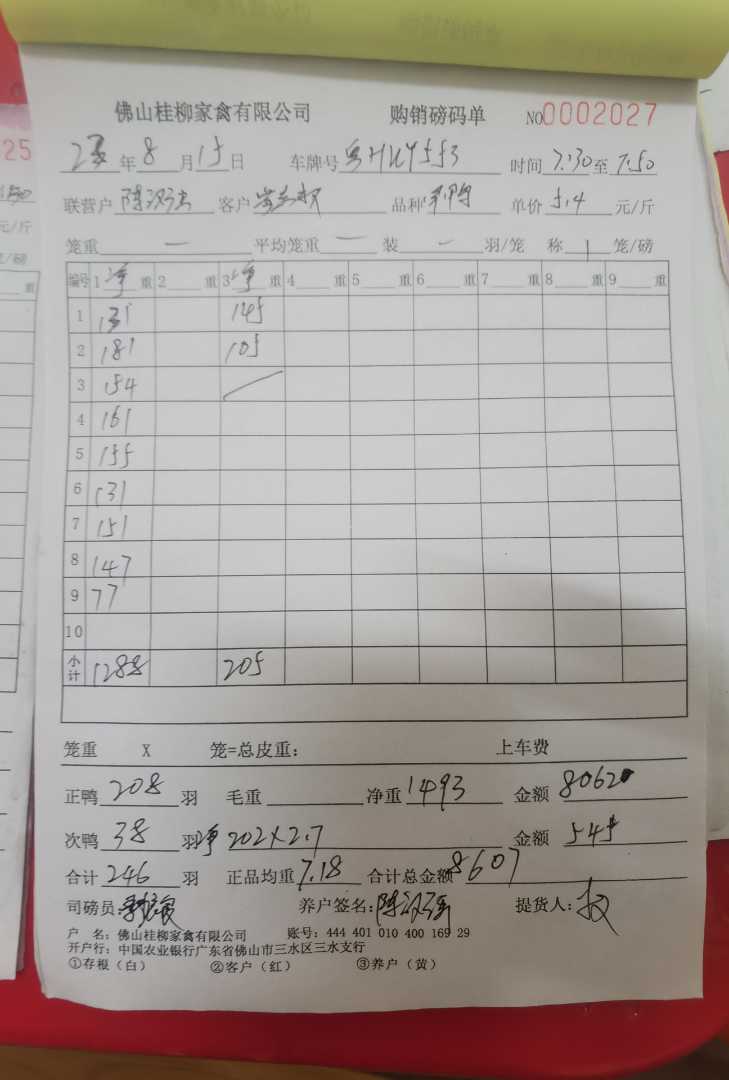 佛山桂柳家禽有限公司 购销磅码单 NO0002027
年8月15日 车牌号 时间7:30至7.50
联营户 陈汉 客户 品种 单价5.4元/斤
笼重 一 平均笼重 一 装 一 羽/笼 称 1 笼/磅
编号 1净重 2 重 3净重 4 重 5 重 6 重 7 重 8 重 9 重
1 131 145
2 181 105
3 154
4 161
5 155
6 131
7 151
8 147
9 77
10
小计 1288 205
笼重 X 笼=总皮重: 上车费
正鸭 208 羽 毛重 净重 1493 金额 8062
次鸭 38 羽 净 202X2.7 金额 545
合计 246 羽 正品均重 7.18 合计总金额 8607
司磅员: 养户签名:陈汉 提货人:权
户 名: 佛山桂柳家禽有限公司 账号: 444 401 010 400 169 29
开户行: 中国农业银行广东省佛山市三水区三水支行
①存根(白) ②客户(红) ③养户(黄)
25
元/斤
笼/磅
重